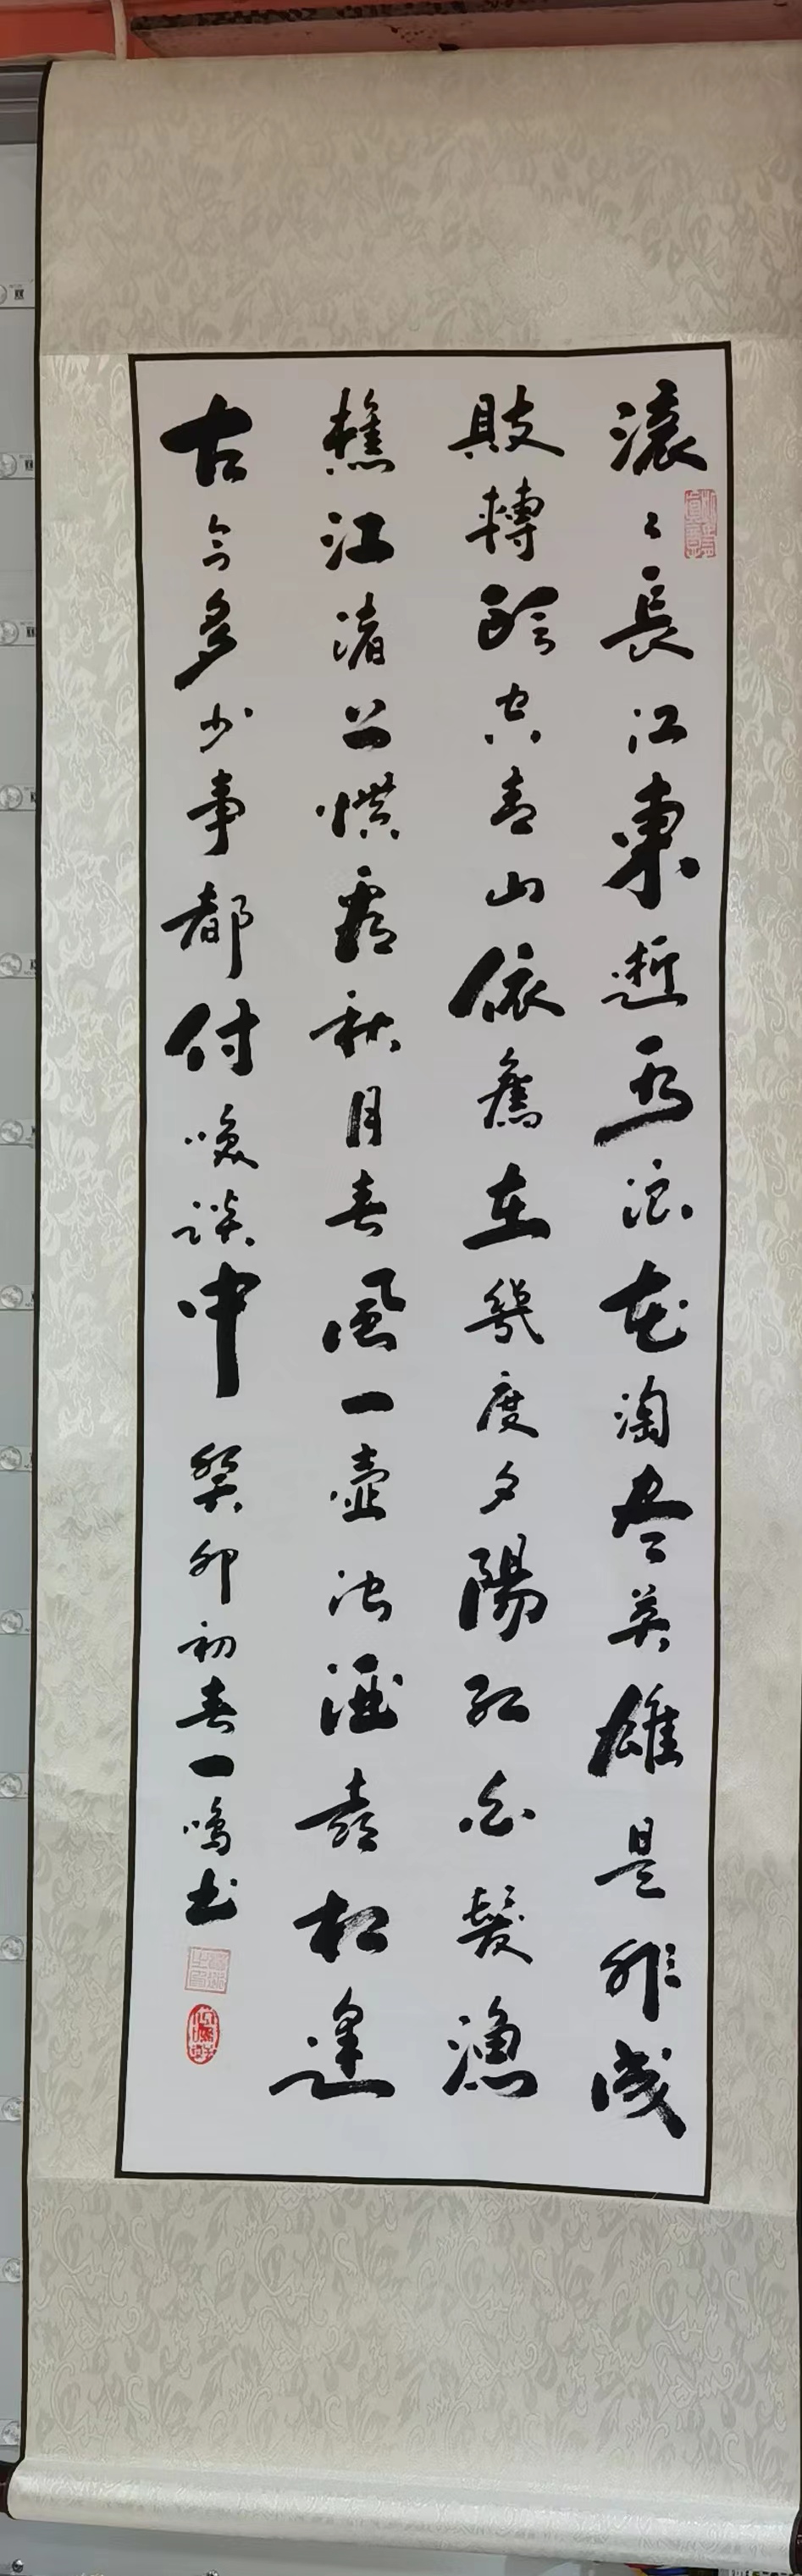 滚々長江東逝水浪花淘尽英雄是非成
敗轉頭空青山依舊在幾度夕陽紅白髮漁
樵江渚上慣看秋月春風一壺浊酒喜相逢
古今多少事都付咲談中 癸卯初春一鳴书